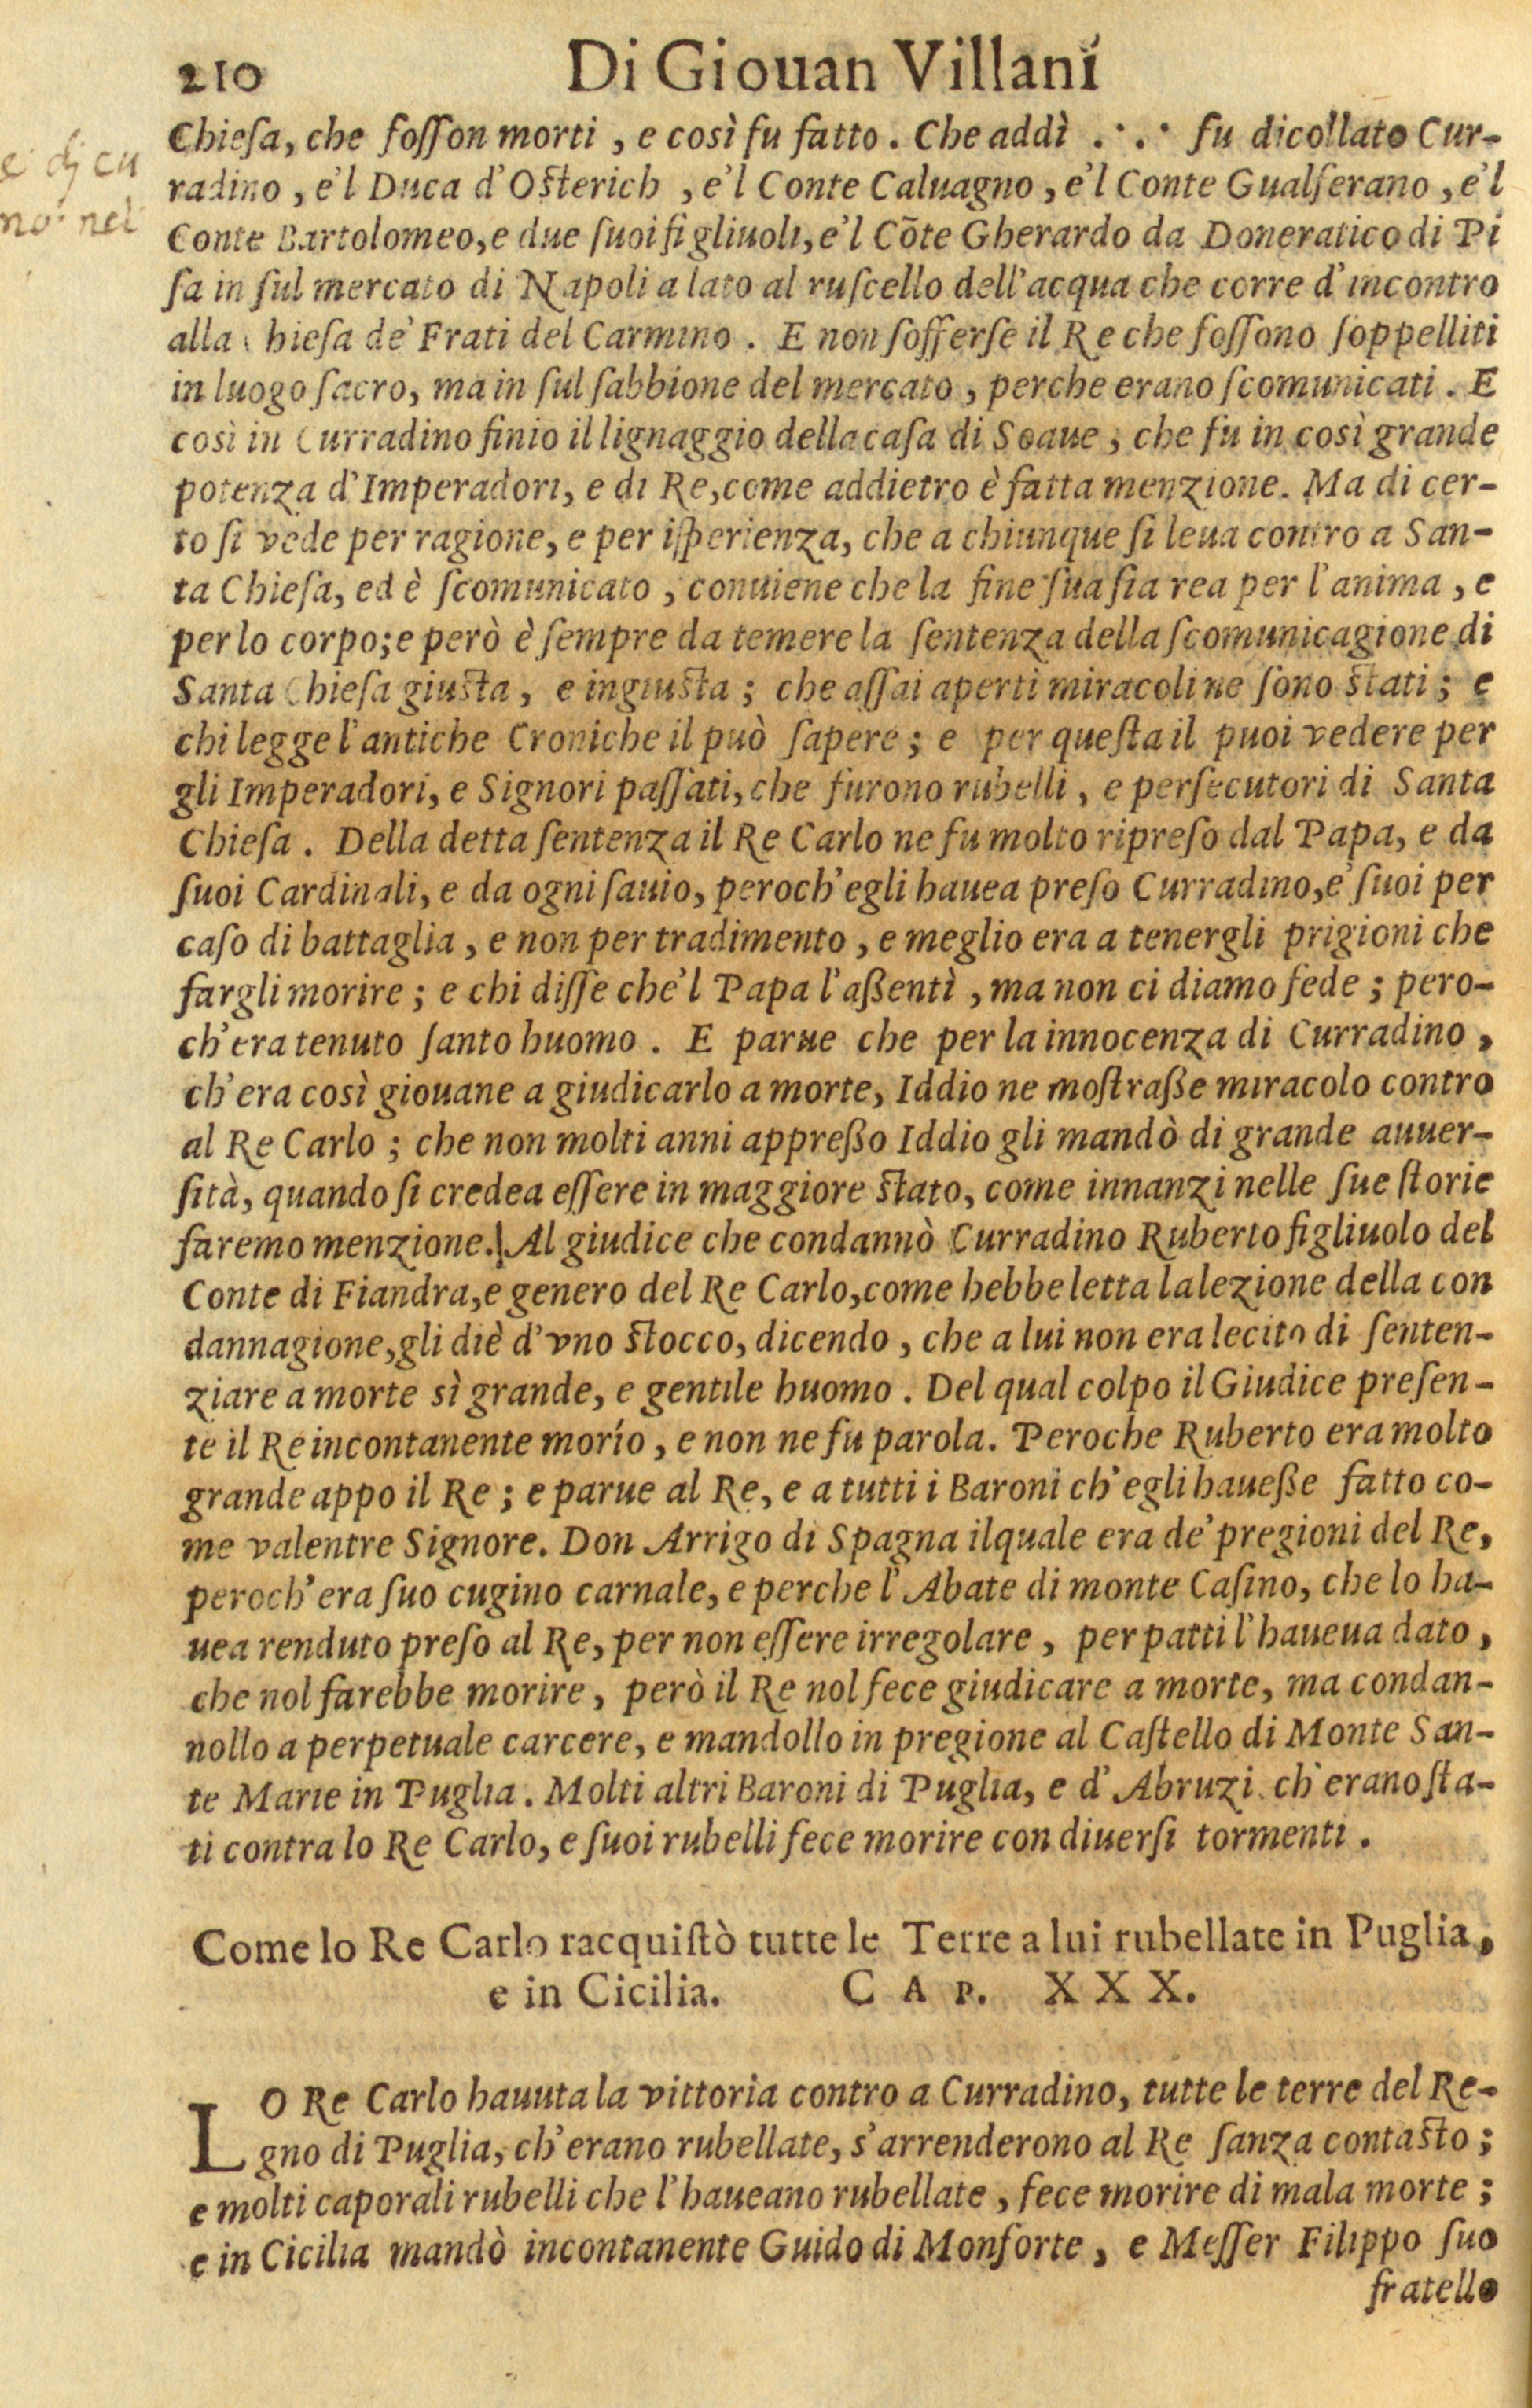 210 Di Giouan Villani
Chieſa, che foſſon morti, e così fu fatto. Che addì .·.· fu dicollato Cur-
radino, e'l Duca d'Oſterich, e'l Conte Caluagno, e'l Conte Gualferano, e'l
Conte Bartolomeo, e due ſuoi figliuoli, e'l Cõte Gherardo da Doneratico di Pi
ſa in ſul mercato di Napoli a lato al ruſcello dell'acqua che corre d'incontro
alla hieſa de' Frati del Carmino. E non ſofferſe il Re che foſſono ſoppelliti
in luogo ſacro, ma in ſul ſabbione del mercato, perche erano ſcomunicati. E
così in Curradino finio il lignaggio della caſa di Soaue, che fu in così grande
potenza d'Imperadori, e di Re, come addietro è fatta menzione. Ma di cer-
to ſi vede per ragione, e per iſperienza, che a chiunque ſi leua contro a San-
ta Chieſa, ed è ſcomunicato, conuiene che la fine ſua ſia rea per l'anima, e
per lo corpo; e però è ſempre da temere la ſentenza della ſcomunicagione di
Santa Chieſa giuſta, e ingiuſta; che aſſai aperti miracoli ne ſono ſtati; e
chi legge l'antiche Croniche il può ſapere; e per queſta il puoi vedere per
gli Imperadori, e Signori paſſati, che furono rubelli, e perſecutori di Santa
Chieſa. Della detta ſentenza il Re Carlo ne fu molto ripreſo dal Papa, e da
ſuoi Cardinali, e da ogni ſauio, peroch'egli hauea preſo Curradino, e' ſuoi per
caſo di battaglia, e non per tradimento, e meglio era a tenergli prigioni che
fargli morire; e chi diſſe che'l Papa l'aßentì, ma non ci diamo fede; pero-
ch'era tenuto ſanto huomo. E parue che per la innocenza di Curradino,
ch'era così giouane a giudicarlo a morte, Iddio ne moſtraße miracolo contro
al Re Carlo; che non molti anni appreßo Iddio gli mandò di grande auuer-
ſità, quando ſi credea eſſere in maggiore ſtato, come innanzi nelle ſue ſtorie
faremo menzione. Al giudice che condannò Curradino Ruberto figliuolo del
Conte di Fiandra, e genero del Re Carlo, come hebbe letta la lezione della con
dannagione, gli diè d'vno ſtocco, dicendo, che a lui non era lecito di ſenten-
ziare a morte sì grande, e gentile huomo. Del qual colpo il Giudice preſen-
te il Re incontanente morío, e non ne fu parola. Peroche Ruberto era molto
grande appo il Re; e parue al Re, e a tutti i Baroni ch'egli haueße fatto co-
me valentre Signore. Don Arrigo di Spagna ilquale era de' pregioni del Re,
peroch'era ſuo cugino carnale, e perche l'Abate di monte Caſino, che lo ha-
uea renduto preſo al Re, per non eſſere irregolare, per patti l'haueua dato,
che nol farebbe morire, però il Re nol fece giudicare a morte, ma condan-
nollo a perpetuale carcere, e mandollo in pregione al Caſtello di Monte San-
te Marie in Puglia. Molti altri Baroni di Puglia, e d'Abruzi ch'erano ſta-
ti contra lo Re Carlo, e ſuoi rubelli fece morire con diuerſi tormenti.
Come lo Re Carlo racquiſtò tutte le Terre a lui rubellate in Puglia,
e in Cicilia. CAP. XXX.
LO Re Carlo hauuta la vittoria contro a Curradino, tutte le terre del Re-
gno di Puglia, ch'erano rubellate, s'arrenderono al Re ſanza contaſto;
e molti caporali rubelli che l'haueano rubellate, fece morire di mala morte;
e in Cicilia mandò incontanente Guido di Monforte, e Meſſer Filippo ſuo
fratello